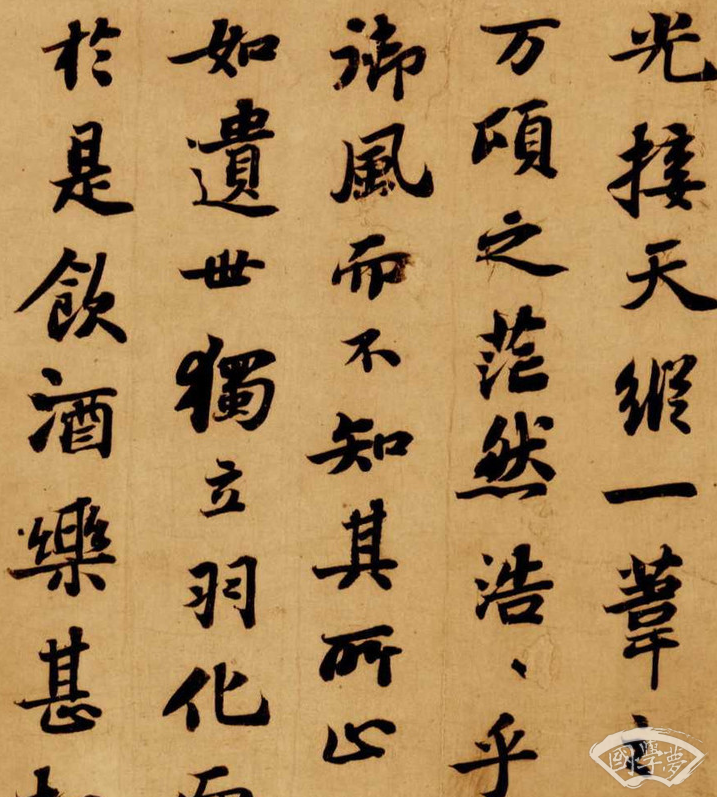 光接天縱一葦
万頃之茫然浩、乎
御風而不知其所止
如遺世獨立羽化而
於是飲酒樂甚
國學夢